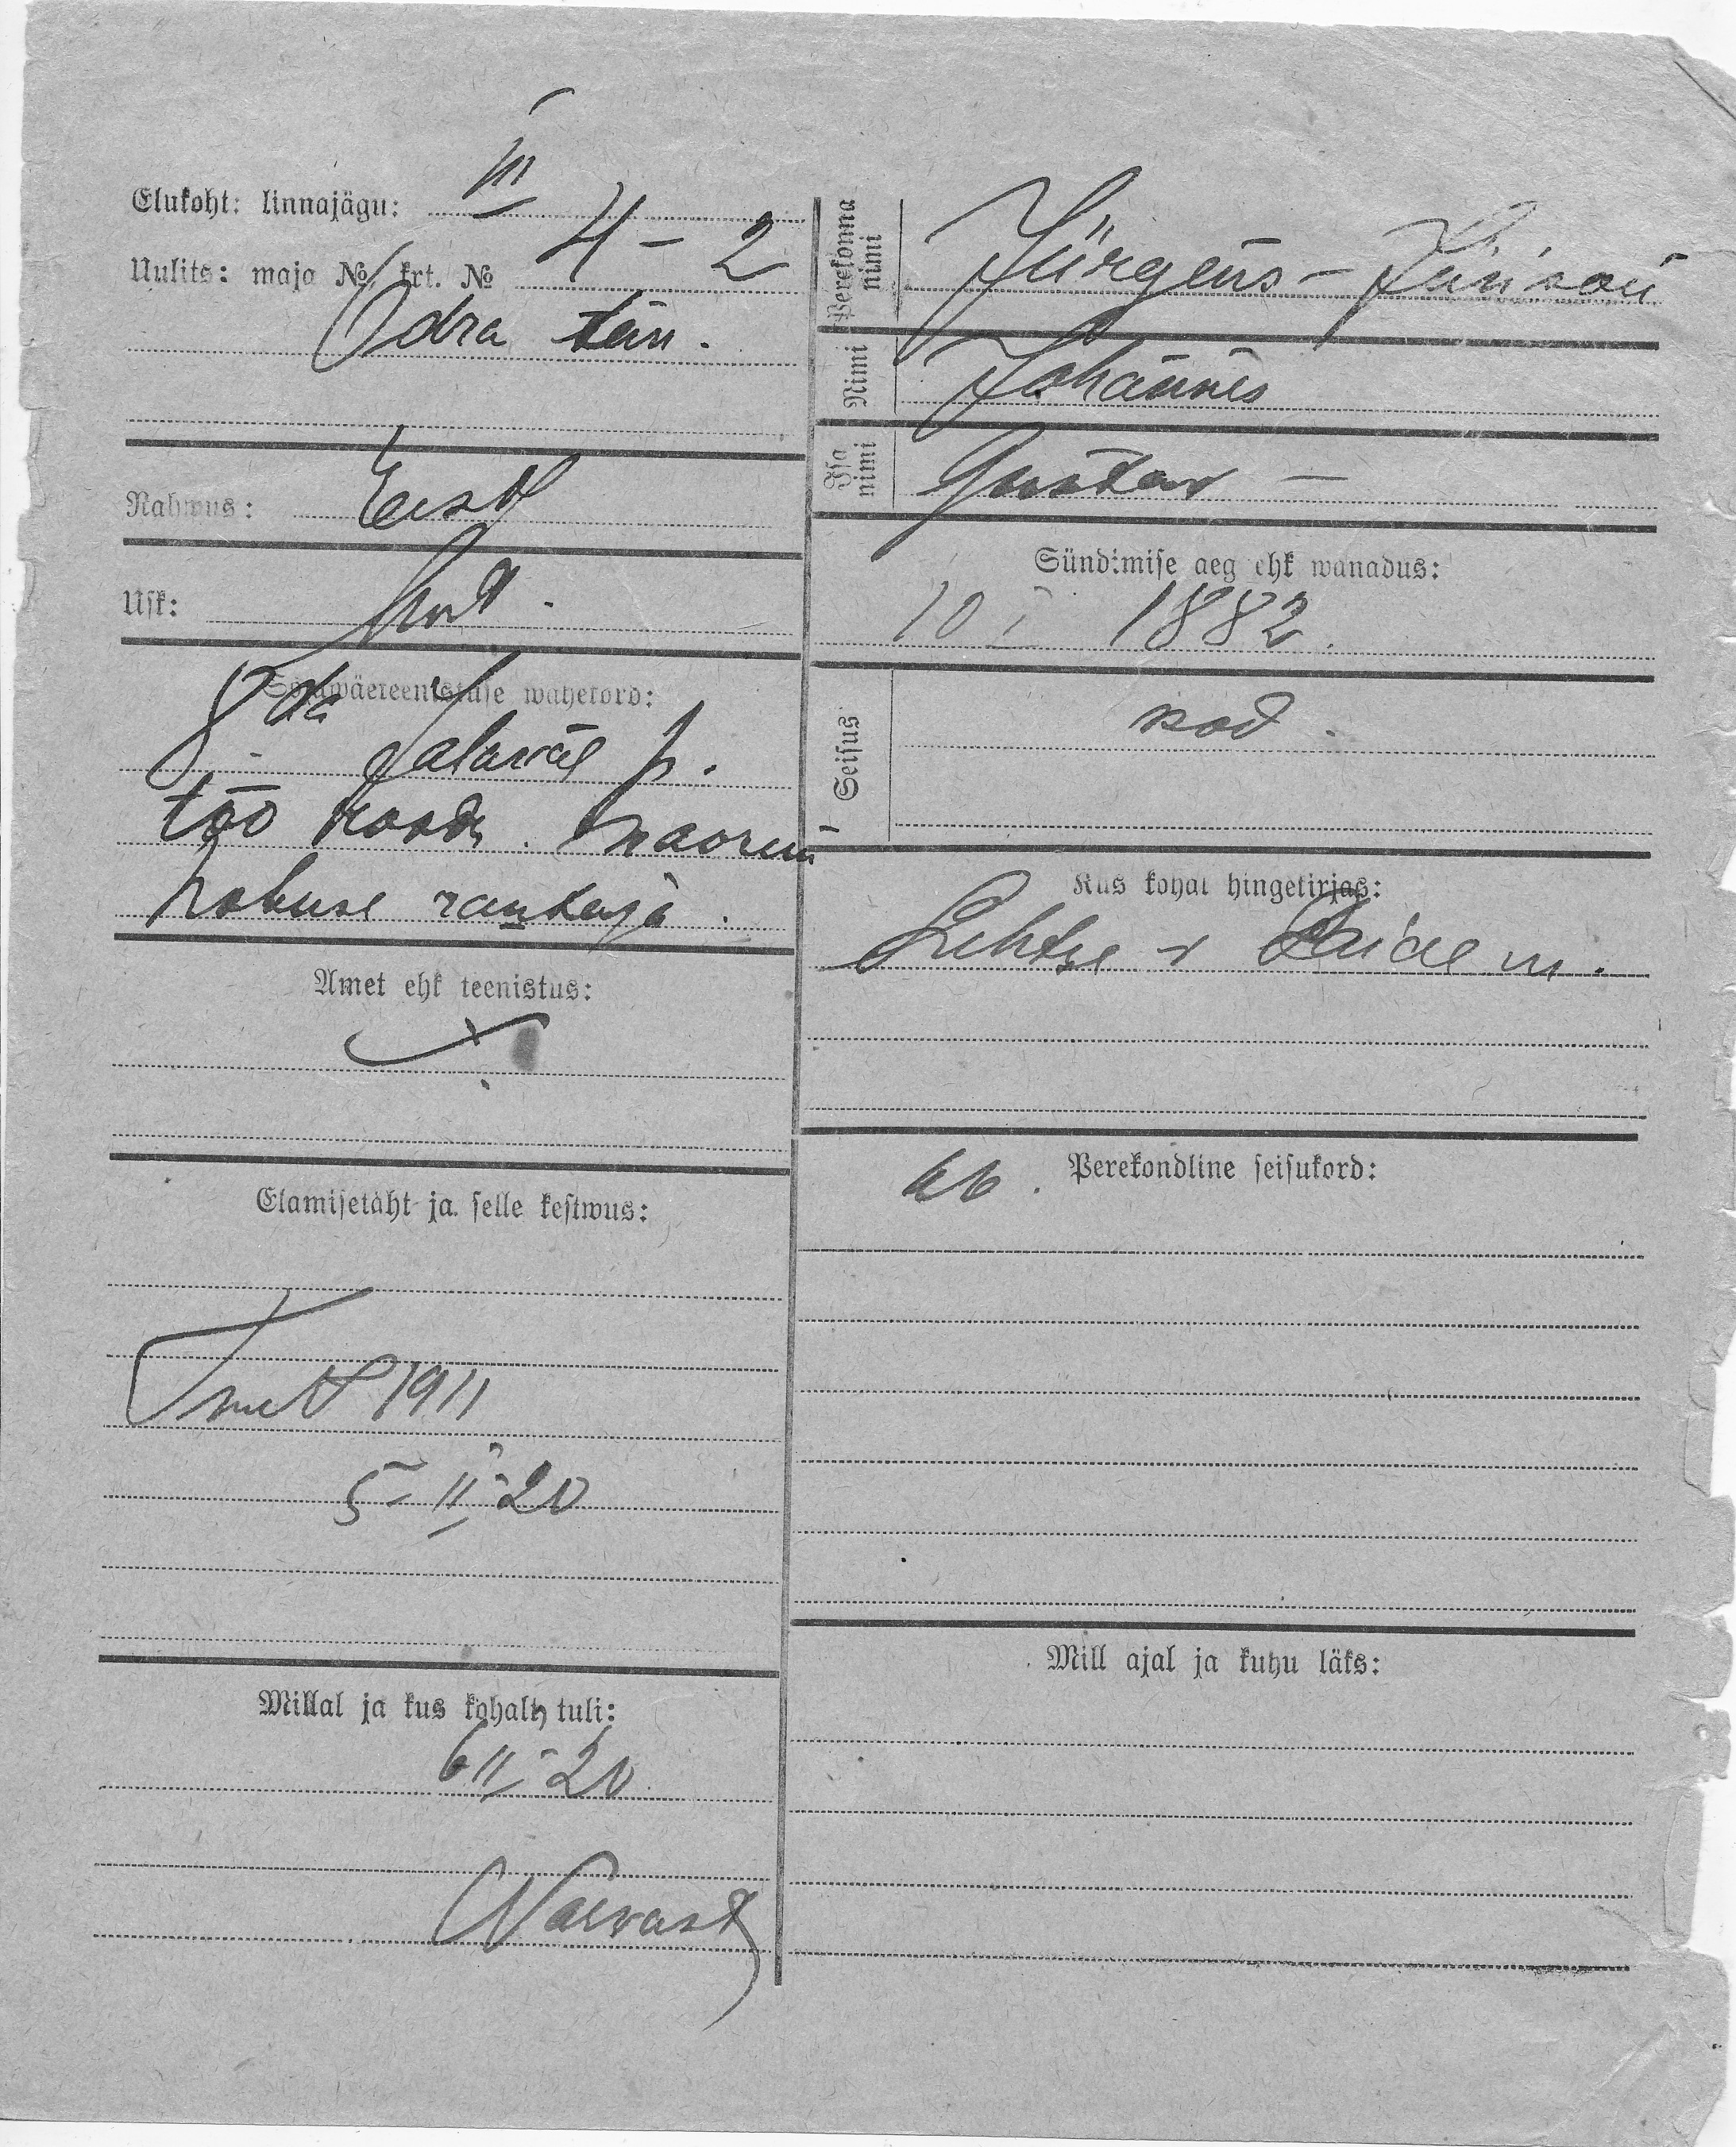 Elukoht: linnajägu: III
Uulits: maja № / krt. № 4 – 2
Odra tän.
Rahwus: Eesti
Usk: Lut.
Sõjawäeteenistuse wahekord:
Jalaväe p.
töö roodu. noorem
hobuse rautaja.
Amet ehk teenistus:
Elamisetäht ja selle kestwus:
1911
5-II-20
Millal ja kus kohalt tuli:
6 II-20
Narvast
Perekonna nimi Jürgens – Jürison
Nimi Johannes
Isa nimi Gustav –
Sündimise aeg ehk wanadus:
10 I 1882.
Seisus kod.
Kus kohal hingekirjas:
Lehtse v Paide m.
Perekondline seisukord:
ab.
Mill ajal ja kuhu läks: